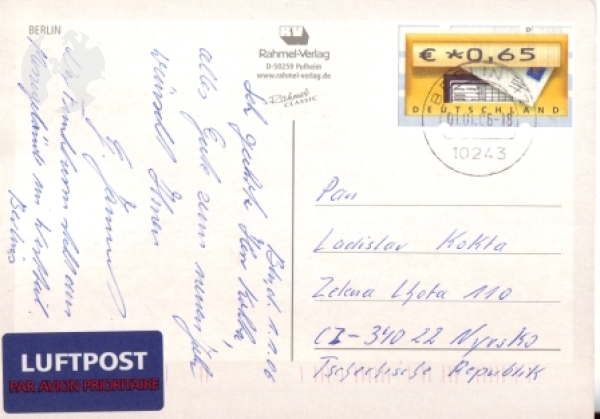 BERLIN
RV
Rahmel-Verlag
D-50259 Pulheim
www.rahmel-verlag.de
Rahmel
CLASSIC
€*0,65
DEUTSCHLAND
BERLIN
01.01.06-18
10243
Blnd. 1.1.06
Herr Kokta,
alles Gute zum neuen Jahr
wünscht Ihnen
Berlins
Pan
Ladislav Kokta
Zelena Lhota 110
CZ-34022 Nyrsko
Tschechische Republik
LUFTPOST
PAR AVION PRIORITAIRE